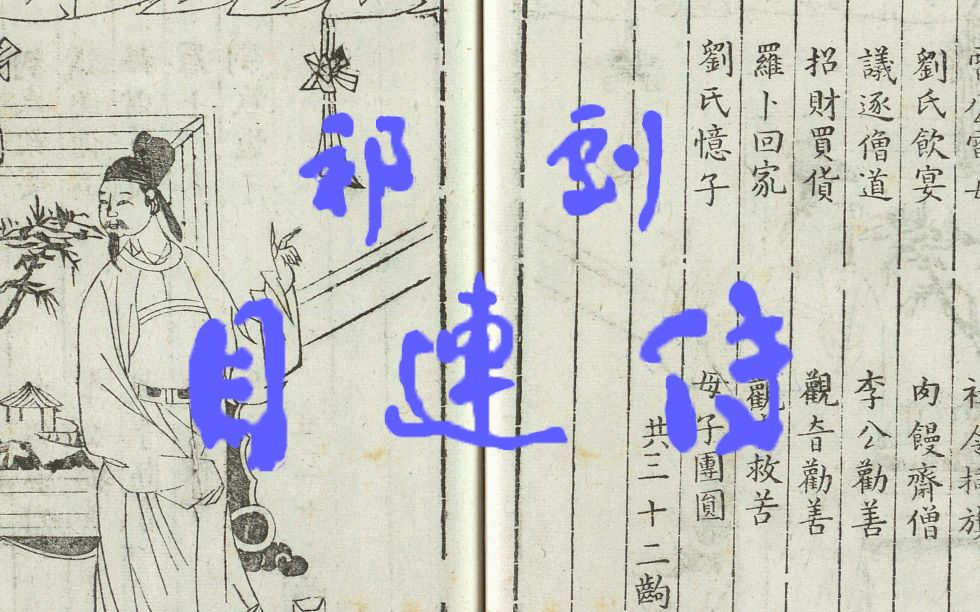 祁剧
目連傳
劉氏飲宴 肉饅齋僧
議逐僧道 李公勸善
招財買貨 觀音勸善
羅卜回家 觀 救苦
劉氏憶子 母子團圓
共三十二齣